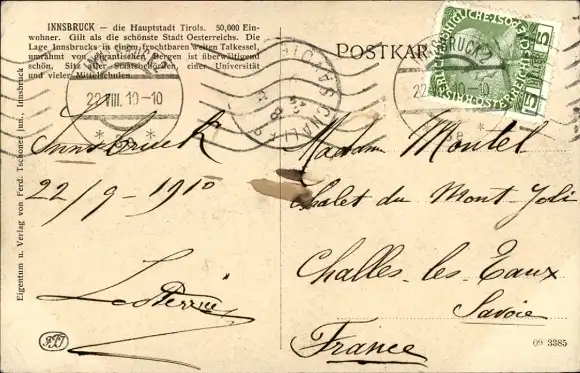 INNSBRUCK — die Hauptstadt Tirols. 50,000 Ein-
wohner. Gilt als die schönste Stadt Oesterreichs. Die
Lage Innsbrucks in einem fruchtbaren weiten Talkessel,
umrahmt von gigantischen Bergen ist überwältigend
schön. Sitz aller Staatsbehörden, einer Universität
und vieler Mittelschulen.
POSTKAR
INNSBRUCK 2
22.VIII.10-10
10-10
5
5
Innsbruck
22/9-1910
Madame Montel
Chalet du Mont-Joli
Challes-les-Eaux
Savoie
France
Eigentum u. Verlag von Ferd. Tschoner jun., Innsbruck
09 3385